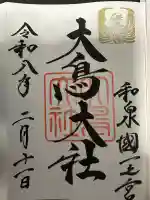 和泉國一之宮
大鳥大社
令和八年
二月十一日